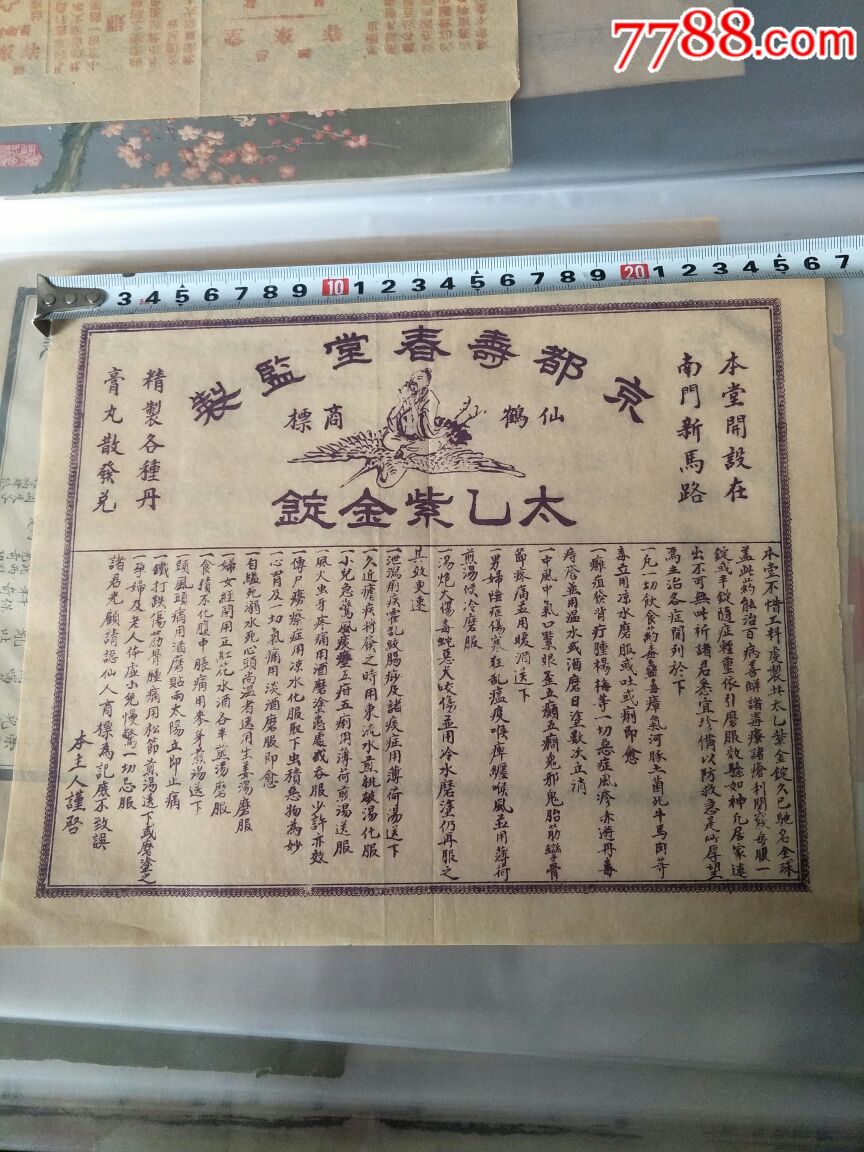 7788.com
3 4 5 6 7 8 9 10 1 2 3 4 5 6 7 8 9 20 1 2 3 4 5 6 7
京都壽春堂監製
仙鶴商標
太乙紫金錠
本堂開設在
南門新馬路
精製各種丹
膏丸散發兌
本堂不惜工料虔製此太乙紫金錠久已馳名全珠
蓋此药能治百病善解諸毒療諸瘡利関竅每服一
錠或半錠隨症輕重依引磨服效驗如神凡居家遠
出不可無此祈諸君悉宜珍備以防救急是所厚望
為主治各症開列於下
一凡一切飲食药毒蠱毒瘴氣河豚土菌死牛馬肉等
毒立用凉水磨服或吐或痢即愈
一癰疽發背疔腫楊梅等一切惡症風疹赤遊丹毒
痔瘡並用温水或酒磨日塗數次立消
一中風中氣口緊眼歪五癲五癇鬼邪鬼胎筋攣骨
節疼痛並用暖酒送下
一男婦陰症傷寒狂乱瘟疫喉痺纏喉風並用薄荷
煎湯候冷磨服
一湯炮火傷毒蛇惡犬咬傷並用冷水磨塗仍再服之
其效更速
一泄瀉痢疾霍乱絞腸痧及諸痰症用薄荷湯送下
一久近瘧疾将發之時用東流水煎桃破湯化服
一小兒急驚風痰癧五疳五痢用薄荷煎湯送服
風火虫等疼痛用酒磨塗患處或吞服少許亦效
一傳尸癆瘵症用凉水化服取下虫積惡物為妙
一心胃及一切氣痛用淡酒磨服即愈
一自縊死溺水死心頭尚温者速用生姜湯磨服
一婦女經閉用立紅花水酒各半煎湯磨服
一食積不化腹中脹痛用麥芽煎湯送下
一頭風頭痛用酒磨貼両太陽立即止痛
一鐵打跌傷筋骨腫痛用松節煎湯送下或磨塗之
一孕婦及老人体虛小兒慢驚一切忌服
諸君光顧請認仙人商標為記庶不致誤
本主人謹啓